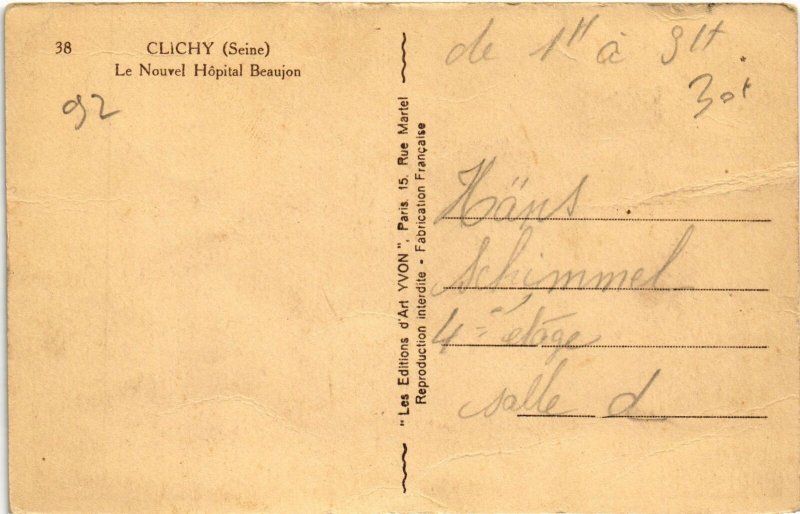 38 CLICHY (Seine)
Le Nouvel Hôpital Beaujon
92
"Les Editions d'Art YVON", Paris. 15, Rue Martel
Reproduction interdite - Fabrication Française
de 1H à 3H
Häns
Schimmel
4e étage
salle d